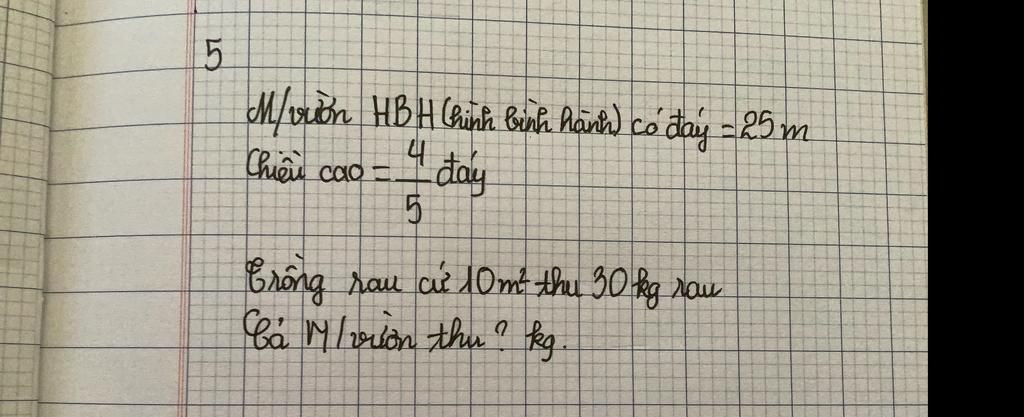 5
M/vườn HBH (hình bình hành) có đáy = 25 m
Chiều cao = 4/5 đáy
Trồng rau cứ 10m² thu 30 kg rau
Cả M/vườn thu? kg.